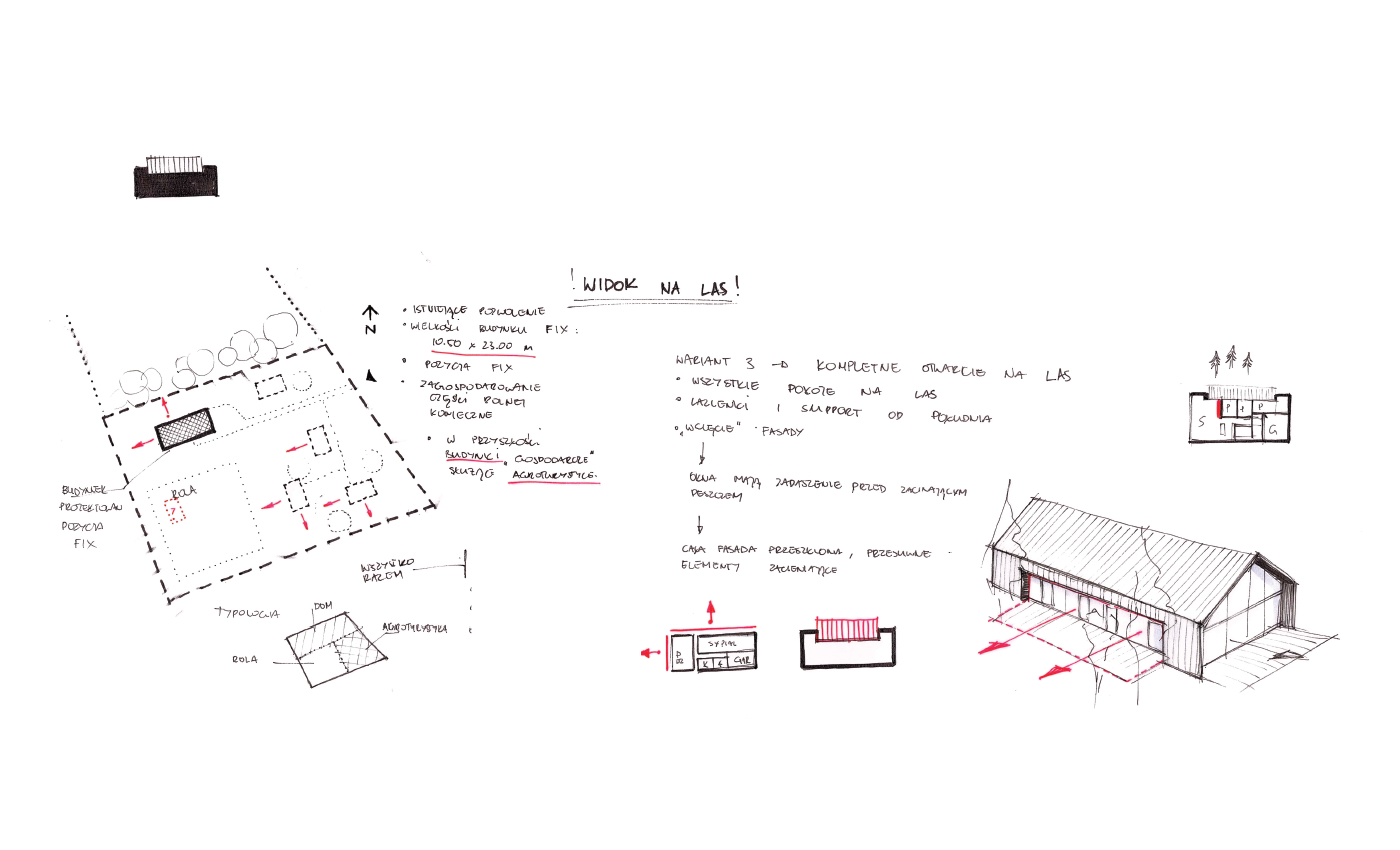 ! WIDOK NA LAS !
N
• ISTNIEJĄCE POZWOLENIE
• WIELKOŚĆ BUDYNKU FIX :
10.50 x 23.00 m
• POZYCJA FIX
• ZAGOSPODAROWANIE
CZĘŚCI ROLNEJ
KONIECZNE
• W PRZYSZŁOŚCI
BUDYNKI „GOSPODARCZE"
SŁUŻĄCE AGROTURYSTYCE.
BUDYNEK
PROJEKTOWAN
POZYCJA
FIX
ROLA
WSZYSTKO
RAZEM
TYPOLOGIA
DOM
AGROTURYSTYKA
ROLA
WARIANT 3 → KOMPLETNE OTWARCIE NA LAS
• WSZYSTKIE POKOJE NA LAS
• ŁAZIENKI I SUPPORT OD POŁUDNIA
• „WCIĘCIE" FASADY
OKNA MAJĄ ZADASZENIE PRZED ZACINAJĄCYM
DESZCZEM
CAŁA FASADA PRZESZKLONA, PRZESUWNE
ELEMENTY ZACIENIAJĄCE
SYPIAL
K Ł GAR
P P P
S G